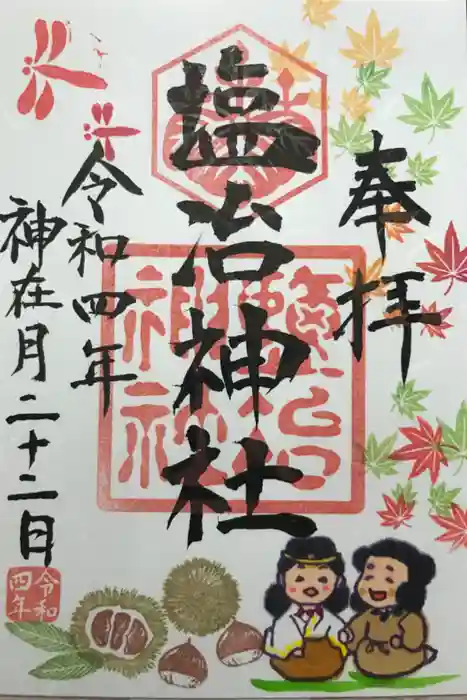 奉拝
塩冶神社
令和四年
神在月二十二日
鹽冶
神社
令和
四年